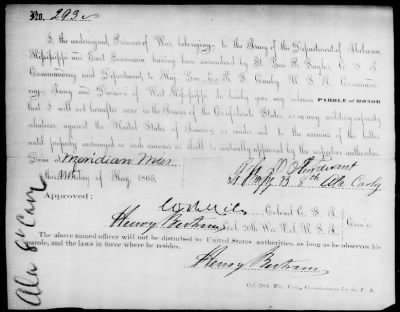 No. 293
I, the undersigned, Prisoner of War, belonging to the Army of the Department of Alabama,
Mississippi and East Louisiana, having been surrendered by Lieut. Gen. R. Taylor, C. S. A.,
Commanding said Department, to Maj. Gen. E. R. S. Canby, U. S. A., Commanding
Army and Division of West Mississippi, do hereby give my solemn PAROLE of HONOR
that I will not hereafter serve in the Armies of the Confederate States, or in any military capacity
whatever, against the United States of America, or render aid to the enemies of the latter,
until properly exchanged in such manner as shall be mutually approved by the respective authorities.
Meridian Miss
day of May, 1865.
Sturdivant
8th Ala Cavly
Approved:
Colonel C. S. A.
Henry Bertram
Col. 20th Wis. Vol. U. S. A.
The above named officer will not be disturbed by United States authorities, as long as he observes his
parole, and the laws in force where he resides.
Henry Bertram
Col. 20th Wis. Vols., Commissioner for the U. S.
Ala 8" Cav